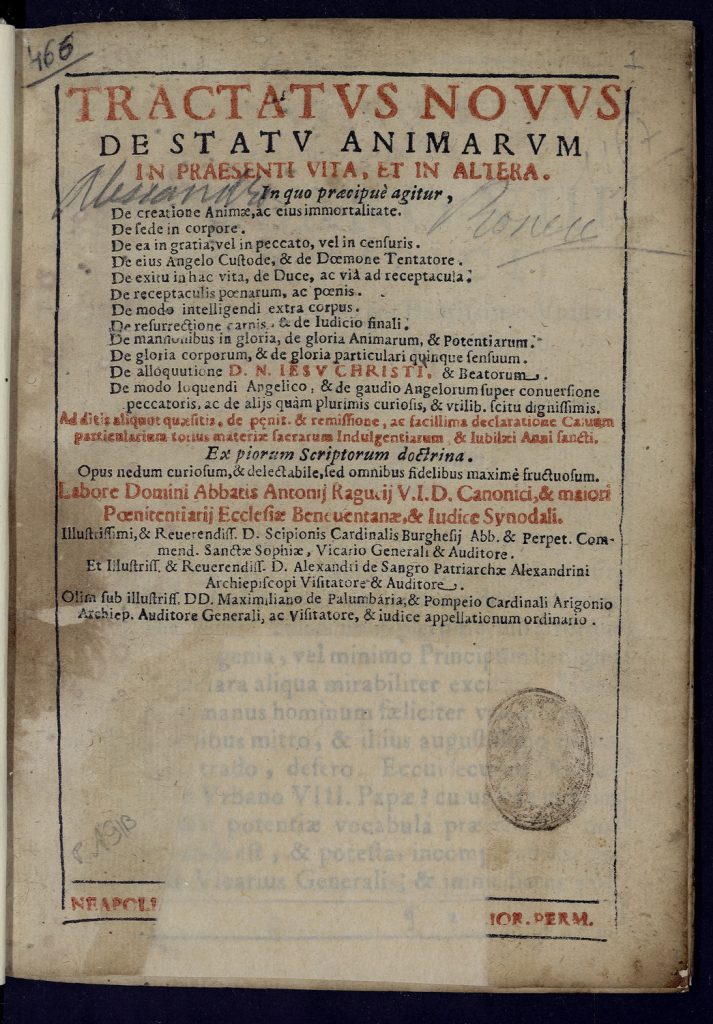 466
1
TRACTATVS NOVVS
DE STATV ANIMARVM
IN PRAESENTI VITA, ET IN ALTERA.
In quo præcipuè agitur,
De creatione Animæ, ac eius immortalitate.
De sede in corpore.
De ea in gratia, vel in peccato, vel in censuris.
De eius Angelo Custode, & de Dœmone Tentatore.
De exitu in hac vita, de Duce, ac via ad receptacula.
De receptaculis pœnarum, ac pœnis.
De modo intelligendi extra corpus.
De resurrectione carnis, & de Iudicio finali.
De mansionibus in gloria, de gloria Animarum, & Potentiarum.
De gloria corporum, & de gloria particulari quinque sensuum.
De alloquutione D. N. IESV CHRISTI. & Beatorum.
De modo loquendi Angelico, & de gaudio Angelorum super conuersione
peccatoris, ac de alijs quàm plurimis curiosis, & vtilib. scitu dignissimis.
Additis aliquot quæsitis, de pęnit. & remissione, ac facillima declaratione Casuum
particularium totius materiæ sacrarum Indulgentiarum, & Iubilæi Anni sancti.
Ex piorum Scriptorum doctrina.
Opus nedum curiosum, & delectabile, sed omnibus fidelibus maximè fructuosum.
Labore Domini Abbatis Antonij Ragucij V.I.D. Canonici, & maiori
Pœnitentiarij Ecclesiæ Beneuentanæ, & Iudice Synodali.
Illustrissimi, & Reuerendiss. D. Scipionis Cardinalis Burghesij Abb. & Perpet. Com-
mend. Sanctæ Sophiæ, Vicario Generali & Auditore.
Et Illustriss. & Reuerendiss. D. Alexandri de Sangro Patriarchæ Alexandrini
Archiepiscopi Visitatore & Auditore.
Olim sub illustriss. DD. Maximiliano de Palumbaria, & Pompeio Cardinali Arigonio
Archiep. Auditore Generali, ac Visitatore, & iudice appellationum ordinario.
genia, vel minimo
aliqua mirabiliter
manus hominum fæliciter
ibus mitto, & illius
trado, defero.
Vrbano VIII. Papæ
potentiæ vocabula
est, & potesta
Vicarius Generalis, &
NEAPOLI
IOR. PERM.